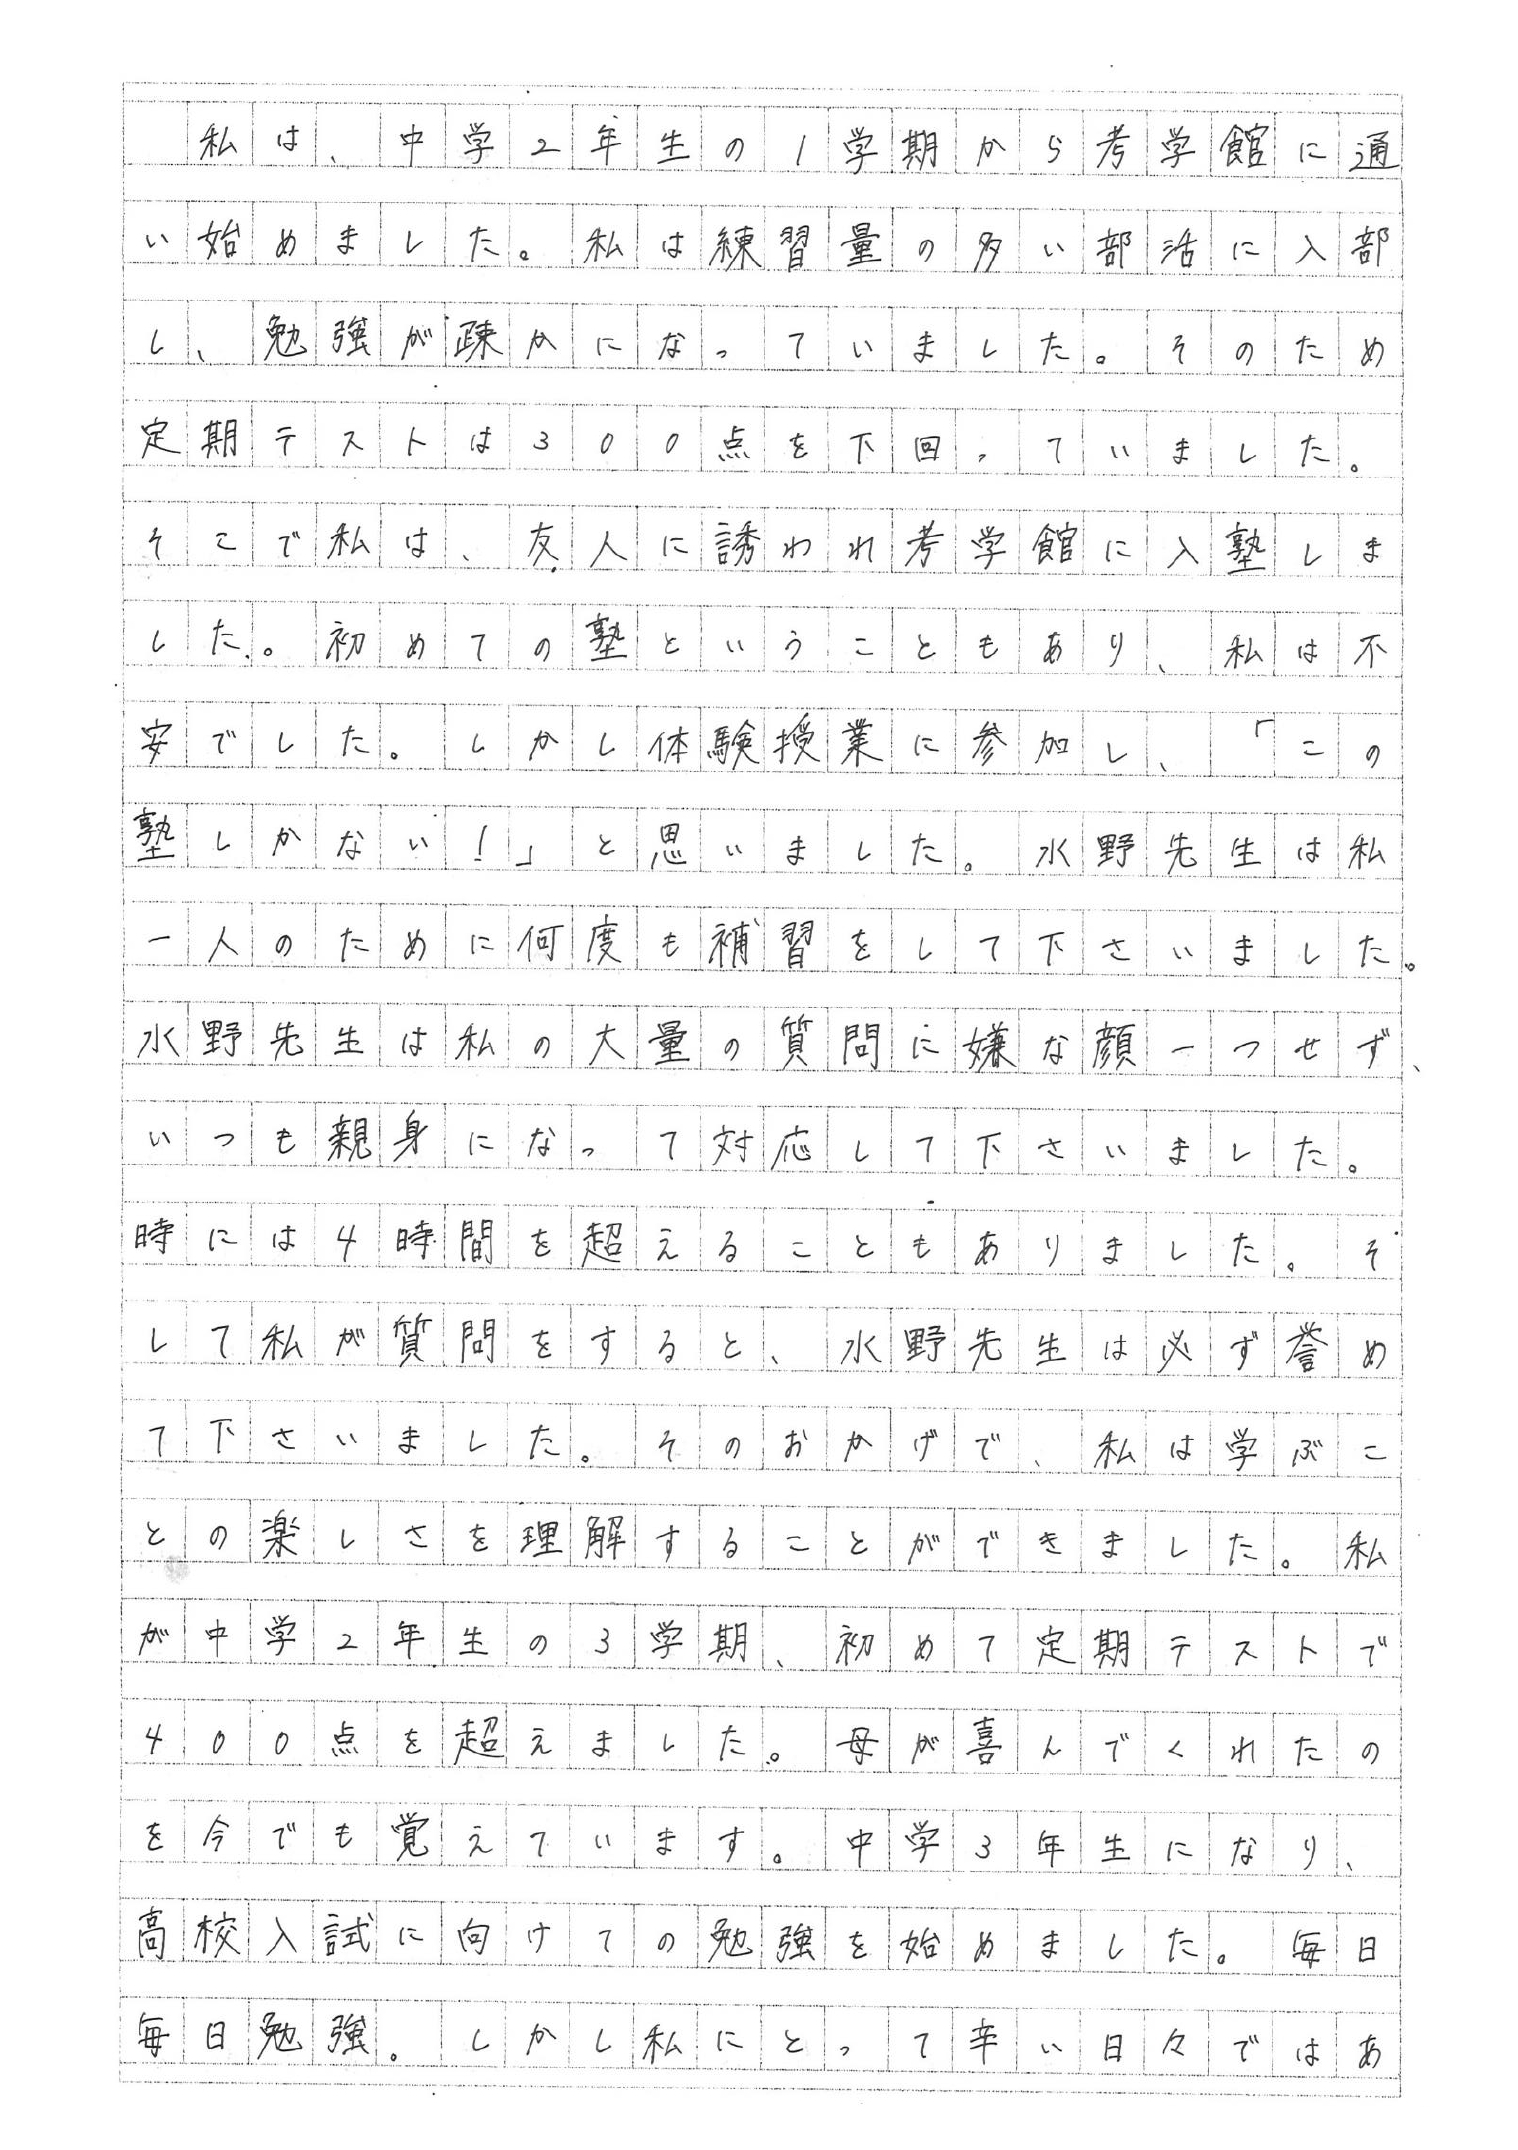 私は、中学2年生の1学期から考学館に通
い始めました。私は練習量の多い部活に入部
し、勉強が疎かになっていました。そのため
定期テストは300点を下回っていました。
そこで私は、友人に誘われ考学館に入塾しま
した。初めての塾ということもあり、私は不
安でした。しかし体験授業に参加し、「この
塾しかない！」と思いました。水野先生は私
一人のために何度も補習をして下さいました。
水野先生は私の大量の質問に嫌な顔一つせず、
いつも親身になって対応して下さいました。
時には4時間を超えることもありました。そ
して私が質問をすると、水野先生は必ず誉め
て下さいました。そのおかげで、私は学ぶこ
との楽しさを理解することができました。私
が中学2年生の3学期、初めて定期テストで
400点を超えました。母が喜んでくれたの
を今でも覚えています。中学3年生になり、
高校入試に向けての勉強を始めました。毎日
毎日勉強。しかし私にとって辛い日々ではあ